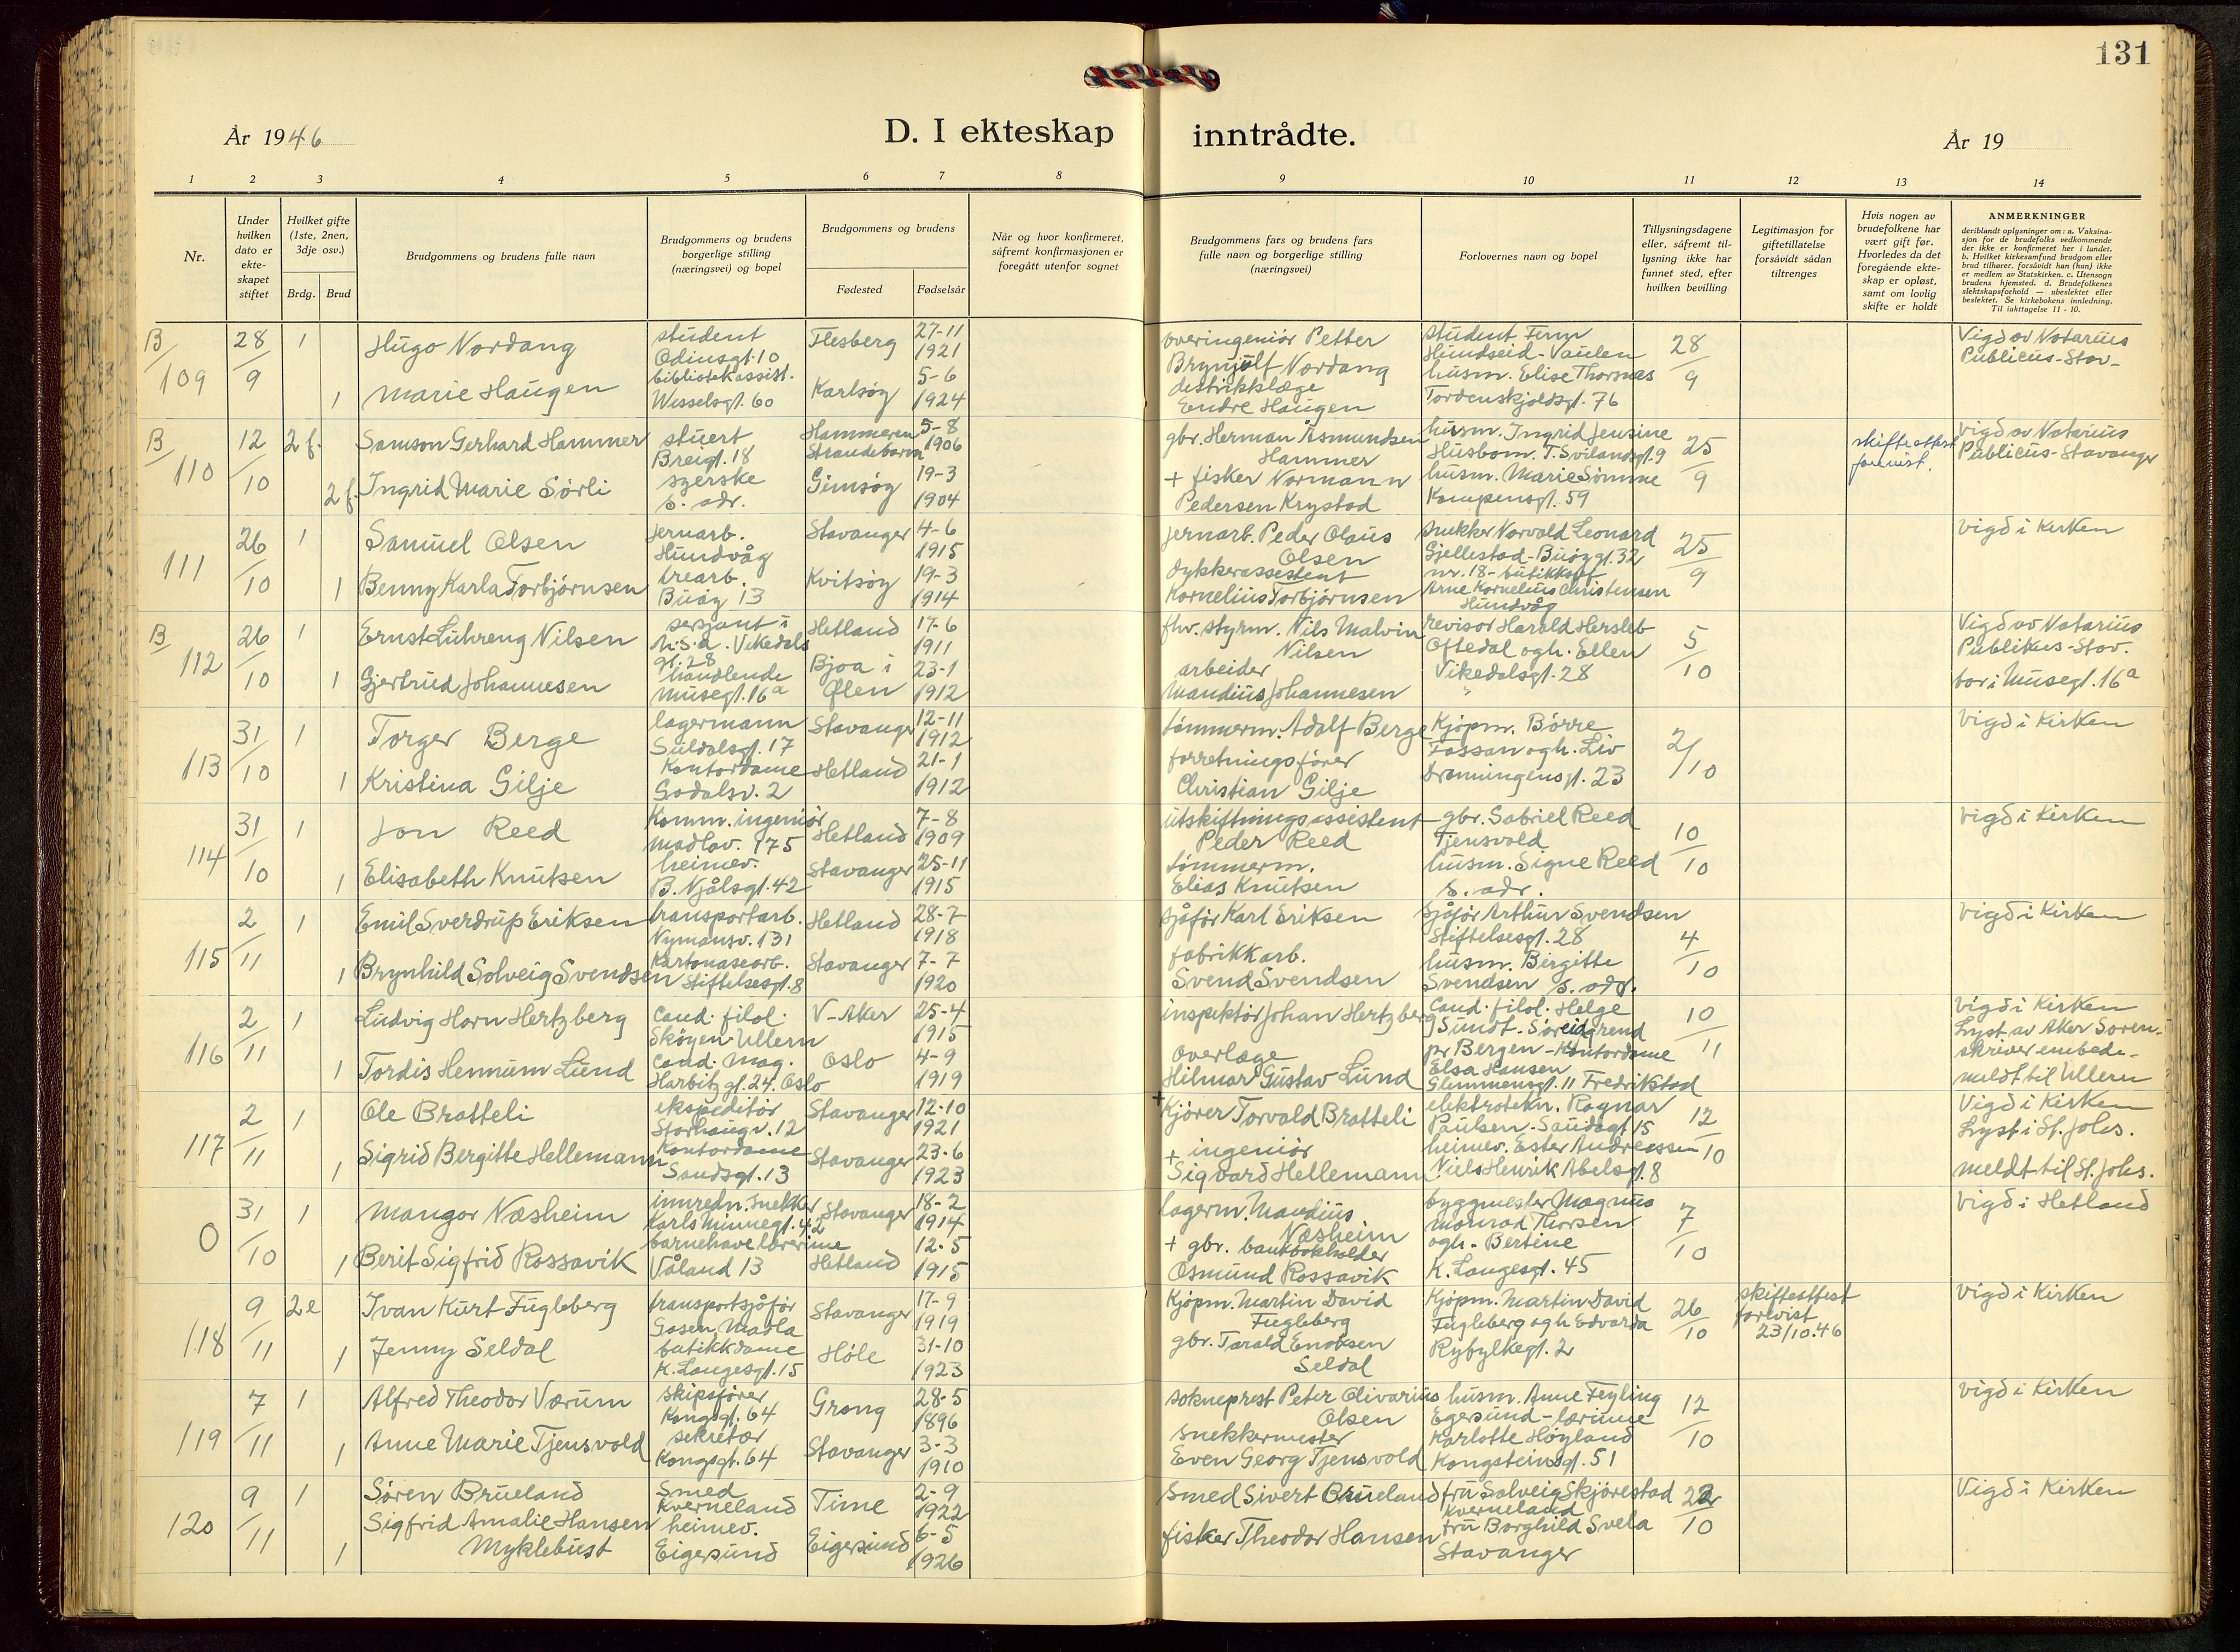 131
År 1946
D. I ekteskap
inntrådte.
År 19
1 2 3 4 5 6 7 8 9 10 11 12 13 14
Nr.
Under
hvilken
dato er
ekte-
skapet
stiftet
Hvilket gifte
(1ste, 2nen,
3dje osv.)
Brdg. Brud
Brudgommens og brudens fulle navn
Brudgommens og brudens
borgerlige stilling
(næringsvei) og bopel
Brudgommens og brudens
Fødested Fødselsår
Når og hvor konfirmeret,
såfremt konfirmasjonen er
foregått utenfor sognet
Brudgommens fars og brudens fars
fulle navn og borgerlige stilling
(næringsvei)
Forlovernes navn og bopel
Tillysningsdagene
eller, såfremt til-
lysning ikke har
funnet sted, efter
hvilken bevilling
Legitimasjon for
giftetillatelse
forsåvidt sådan
tiltrenges
Hvis nogen av
brudefolkene har
vært gift før.
Hvorledes da det
foregående ekte-
skap er opløst,
samt om lovlig
skifte er holdt
ANMERKNINGER
deriblandt oplysninger om: a. Vaksina-
sjon for de brudefolks vedkommende
der ikke er konfirmeret her i landet.
b. Hvilket kirkesamfund brudgom eller
brud tilhører, forsåvidt han (hun) ikke
er medlem av Statskirken. c. Utensogn
brudens hjemsted. d. Brudefolkenes
slektskapsforhold — ubeslektet eller
beslektet. Se kirkebokens innledning.
Til iakttagelse 11 - 10.
B/109
28/9
1
Hugo Nordang
student
Odinsgt. 10
Flesberg
27-11
1921
1
Marie Haugen
bibliotekassist.
Wesselsgt. 60
Karlsøy
5-6
1924
overingeniör Petter
Brynjulf Nordang
distriktslæge
Endre Haugen
student Finn
Hundseid - Vaulen
husm. Elise Thorsnæs
Tordenskjoldsgt. 76
28/9
Vigd av Notarius
Publicus-Stav-
B/110
12/10
2 f.
Samson Gerhard Hammer
stuert
Breigt. 18
Hammeren
Strandebarm
5-8
1906
2 f.
Ingrid Marie Sörli
syerske
s. adr.
Gimsöy
19-3
1904
gbr. Herman Åsmundsen
Hammer
+ fisker Normann
Pedersen Krystad
husm. Ingrid Jensine
Husbom. T. Svilandsgt. 9
husm. Marie Sömme
Kampensgt. 59
25/9
skifteattest
forevist.
Vigd av Notarius
Publicus-Stavanger
111
26/10
1
Samuel Olsen
jernarb.
Hundvåg
Stavanger
4-6
1915
1
Benny Karla Torbjörnsen
trearb.
Buöy 13
Kvitsöy
19-3
1914
jernarb. Peder Olaus
Olsen
dykkerassistent
Kornelius Torbjörnsen
snekker Norvald Leonard
Gjellestad - Buöygt. 32
nr. 18 -
Arne Kornelius Christensen
Hundvåg
25/9
vigd i kirken
B/112
26/10
1
Ernst Luhreng Nilsen
sersjant i
Vikedals
gt. 28
Hetland
17-6
1911
1
Gjertrud Johannesen
handlende
Musegt. 16a
Bjoa i
Ölen
23-1
1912
fhv. styrm. Nils Malvin
Nilsen
arbeider
Mandius Johannesen
revisor Harald Hersleb
Oftedal og h. Ellen
Vikedalsgt. 28
5/10
Vigd av Notarius
Publikus-Stav.
bor i Musegt. 16a
113
31/10
1
Torger Berge
lagermann
Suldalsgt. 17
Stavanger
12-11
1912
1
Kristina Gilje
Kontordame
Godalsv. 2
Hetland
21-1
1912
tömmerm. Adolf Berge
forretningsförer
Christian Gilje
Kjöpm. Börre
Fossan og h. Liv
Dronningensgt. 23
2/10
Vigd i Kirken
114
31/10
1
Jon Reed
Komm. ingeniör
Madlav. 175
Hetland
7-8
1909
1
Elisabeth Knutsen
heimev.
B. Njålsgt. 42
Stavanger
25-11
1915
utskiftningsassistent
Peder Reed
tömmerm.
Elias Knutsen
gbr. Gabriel Reed
Tjensvold
husm. Signe Reed
s. adr.
10/10
vigd i Kirken
115
2/11
1
Emil Sverdrup Eriksen
transportarb.
Nymansv. 131
Hetland
28-7
1918
1
Brynhild Solveig Svendsen
Kartonasearb.
Stiftelsesgt. 8
Stavanger
7-7
1920
sjåför Karl Eriksen
fabrikkarb.
Svend Svendsen
Sjåför Arthur Svendsen
Stiftelsesgt. 28
husm. Birgitte
Svendsen s. adr.
4/10
Vigd i Kirken
116
2/11
1
Ludvig Horn Hertzberg
cand. filol.
Sköyen-Ullern
V-Aker
25-4
1915
1
Tordis Hennum Lund
cand. mag.
Harbitz gt. 24. Oslo
Oslo
4-9
1919
inspektör Johan Hertzberg
Overlæge
Hilmar Gustav Lund
Cand. filol. Helge
Sundt - Söreidgrend
pr Bergen - Kontordame
Elsa Hansen
Glemmensgt. 11 Fredrikstad
10/11
vigd i Kirken
Lyst av Aker Soren-
skriverembede -
meldt til Ullern
117
2/11
1
Ole Bratteli
ekspeditör
Storhaugv. 12
Stavanger
12-10
1921
1
Sigrid Bergitte Hellemann
Kontordame
Sandsgt. 13
Stavanger
23-6
1923
+
Kjörer Torvald Bratteli
+ ingeniör
Sigvard Hellemann
elektrotekn. Ragnar
Paulsen - Saudagt 15
heimev. Ester Andreassen
Niels Henrik Abelsgt. 8
12/10
Vigd i Kirken
Lyst i St. Johs.
meldt til St. Johs.
0
31/10
1
Mangor Næsheim
innredn. snekker
Karls Minnegt. 42
Stavanger
18-2
1914
1
Berit Sigfrid Rossavik
barnehavelærerinne
Våland 13
Hetland
12-5
1915
lagerm. Mandius
Næsheim
+ gbr. bankbokholder
Osmund Rossavik
byggmester Magnus
Monrad Thorsen
og h. Bertine
K. Langesgt. 45
7/10
Vigd i Hetland
118
9/11
2e
Ivan Kurt Fugleberg
transportsjåför
Gosen, Madla
Stavanger
17-9
1919
1
Jenny Seldal
butikkdame
K. Langesgt. 15
Höle
31-10
1923
Kjöpm. Martin David
Fugleberg
gbr. Tarald Enoksen
Seldal
Kjöpm. Martin David
Fugleberg og h Edvarda
Ryfylkegt. 2
26/10
skifteattest
forevist
23/10.46
vigd i Kirken
119
7/11
1
Alfred Theodor Værum
skipsförer
Kongsgt. 64
Grong
28-5
1896
1
Anne Marie Tjensvold
sekretær
Kongsgt. 64
Stavanger
3-3
1910
sokneprest Peter Olivarius
Olsen
snekkermester
Even Georg Tjensvold
husm. Anne Feyling
Egersund - lærinne
Karlotte Höyland
Kongsteinsgt. 51
12/10
Vigd i Kirken
120
9/11
1
Sören Brueland
Smed
Kverneland
Time
2-9
1922
1
Sigfrid Amalie Hansen
Myklebust
heimev.
Eigersund
Eigersund
6-5
1926
Smed Sivert Brueland
fisker Theodor Hansen
fru Solveig Skjörestad
Kverneland
fru Borghild Svela
Stavanger
22/10
Vigd i Kirken